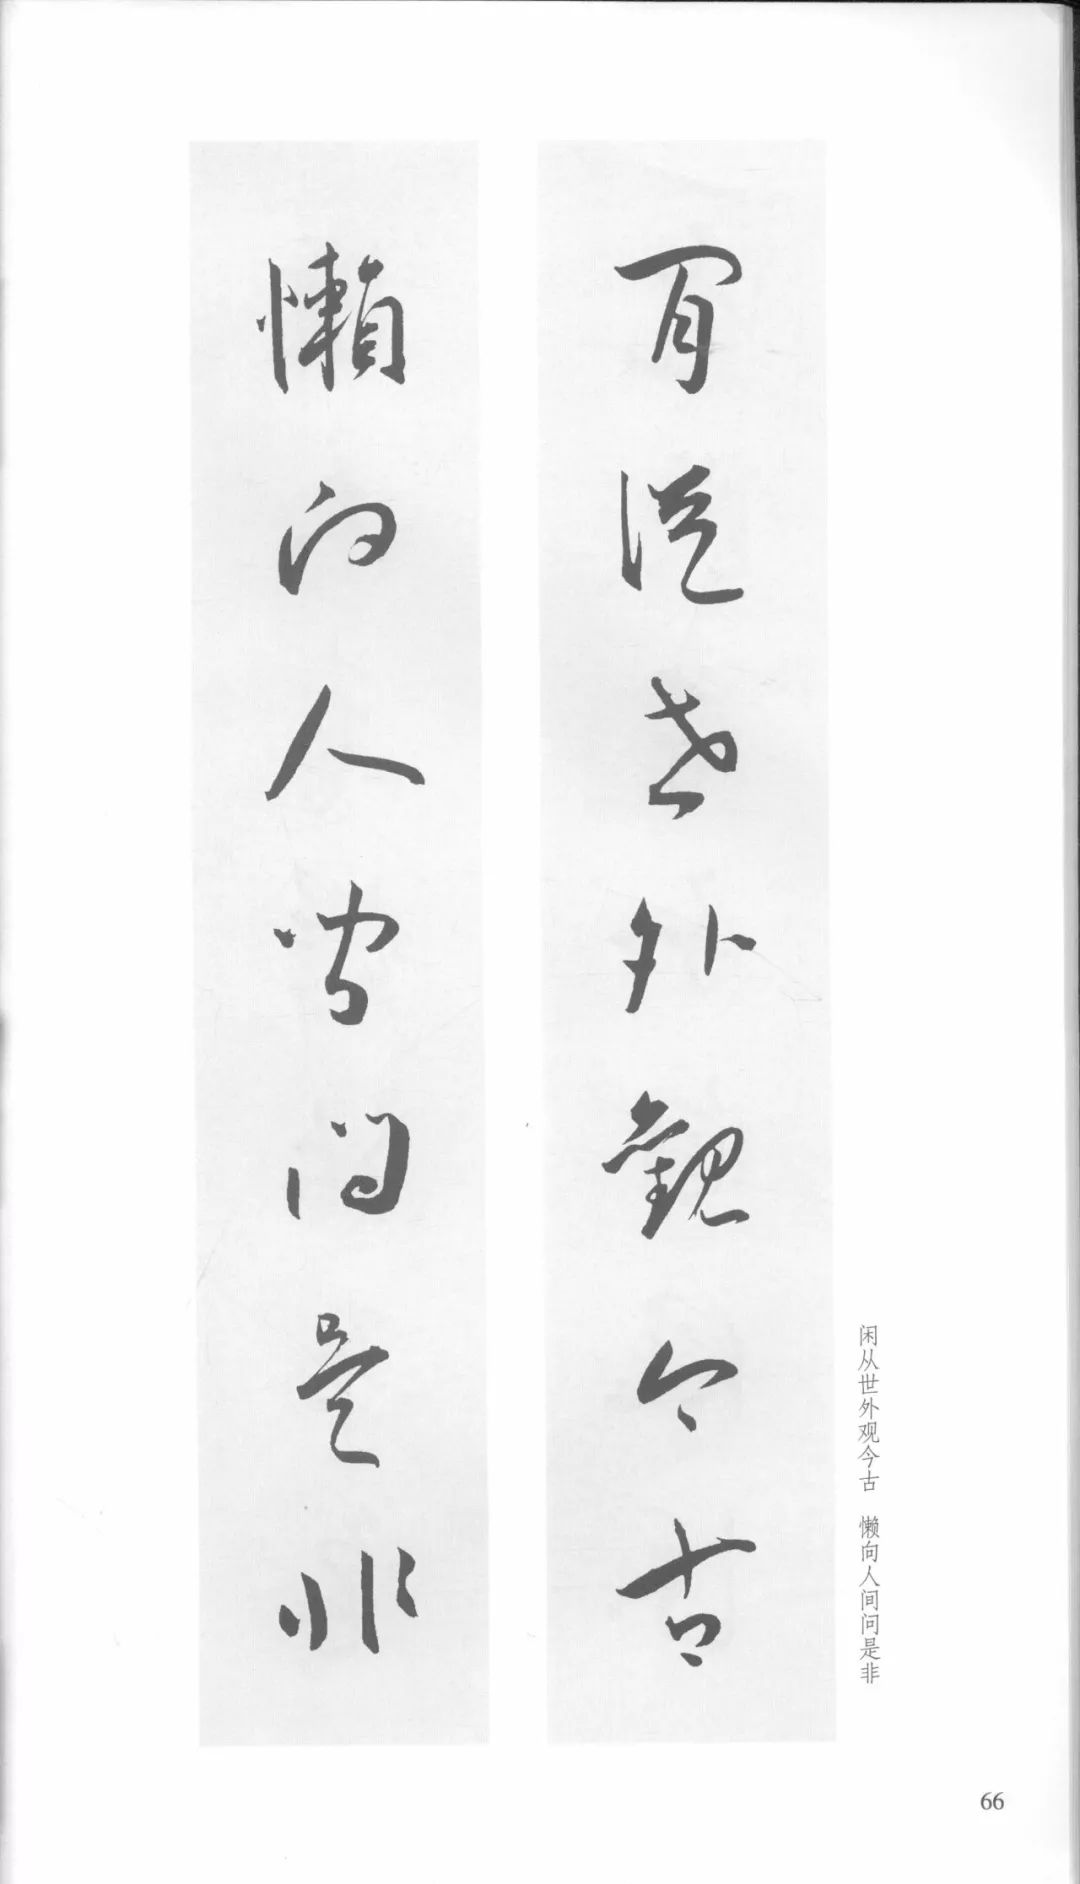 閒从世外觀今古
懶向人间问是非
闲从世外观今古 懒向人间问是非
66